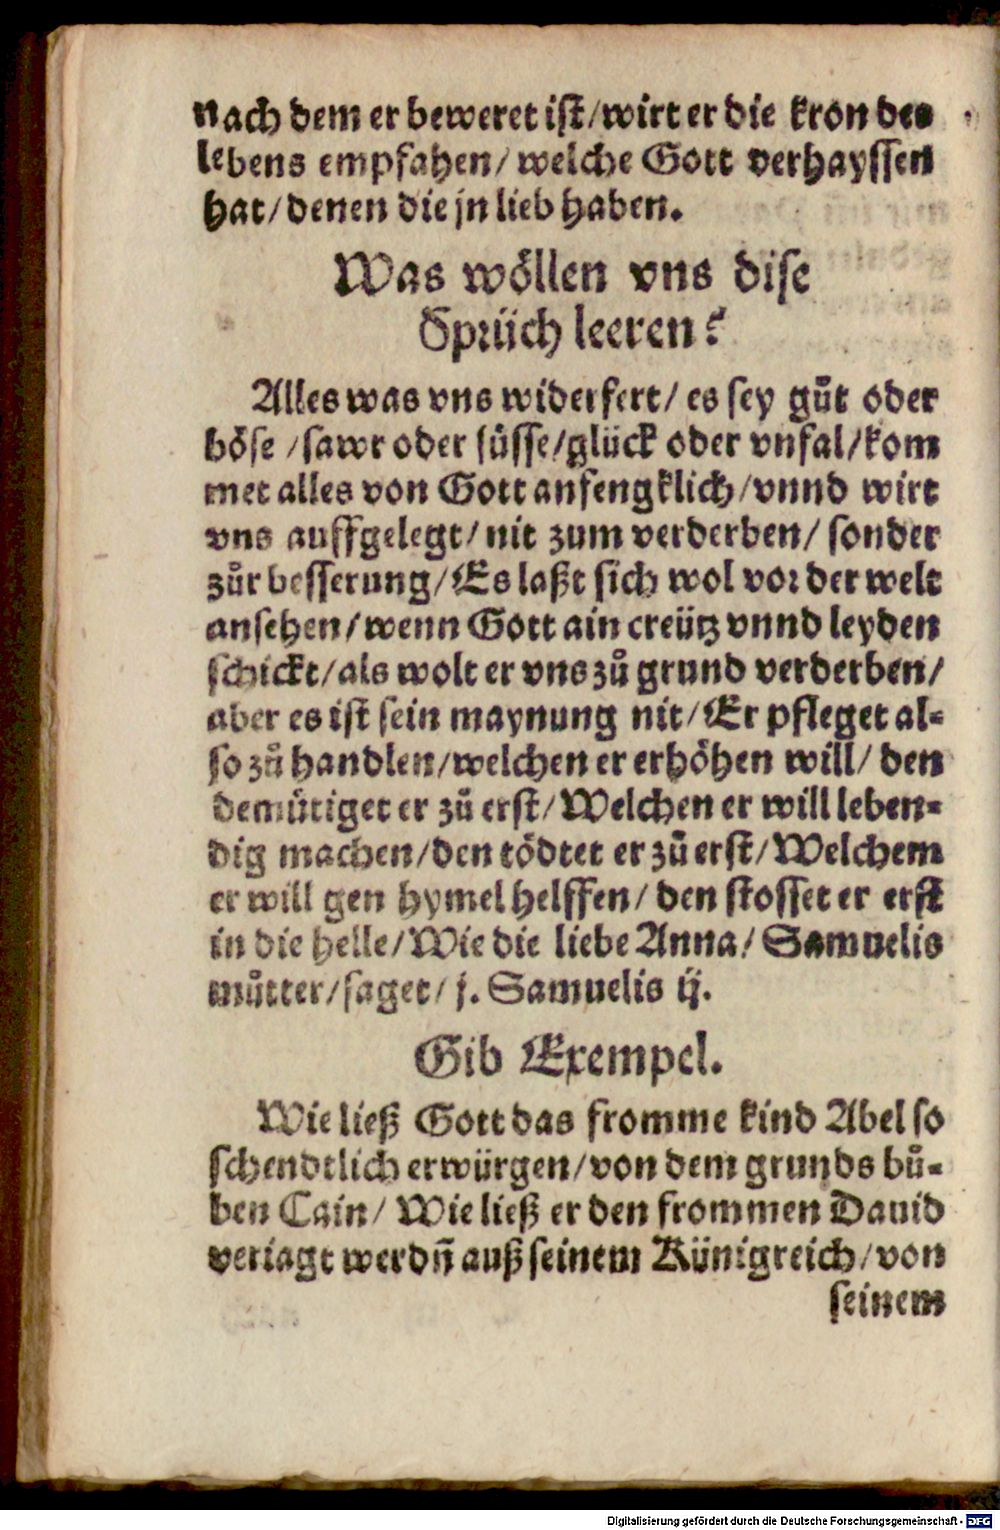 nach dem er beweret ist/wirt er die kron des
lebens empfahen/ welche Gott verhayssen
hat/ denen die jn lieb haben.
Was wöllen vns dise
Sprüch leeren?
Alles was vns widerfert/ es sey gůt oder
böse /sawr oder süsse/glück oder vnfal/kom
met alles von Gott anfengklich/vnnd wirt
vns auffgelegt/ nit zum verderben/ sonder
zůr besserung/Es laßt sich wol vor der welt
ansehen/wenn Gott ain creütz vnnd leyden
schickt/als wolt er vns zů grund verderben/
aber es ist sein maynung nit/Er pfleget al⸗
so zů handlen/welchen er erhöhen will/ den
demütiget er zů erst/Welchen er will leben⸗
dig machen/den tödtet er zů erst/Welchem
er will gen hymel helffen/ den stosset er erst
in die helle/Wie die liebe Anna/ Samuelis
můtter/saget/ j. Samuelis ij.
Gib Exempel.
Wie ließ Gott das fromme kind Abel so
schendtlich erwürgen/von dem grunds bů⸗
ben Cain/ Wie ließ er den frommen Dauid
veriagt werdn̄ auß seinem Künigreich/von
seinem
Digitalisierung gefördert durch die Deutsche Forschungsgemeinschaft - DFG